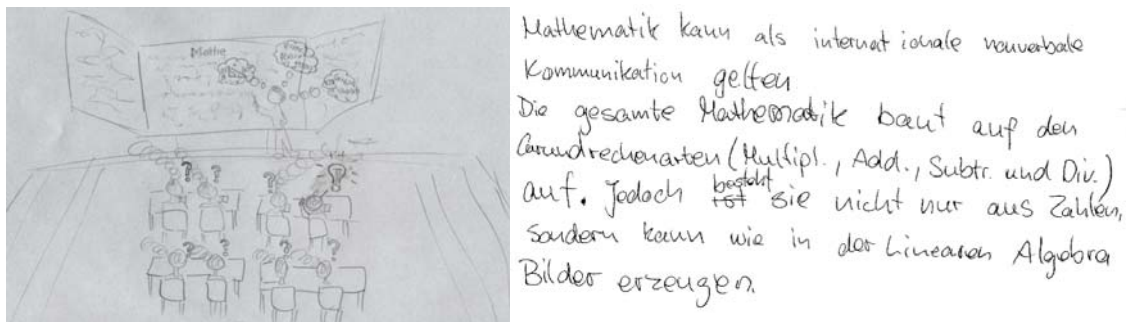 Mathe
Mathematik kann als internationale nonverbale
Kommunikation gelten
Die gesamte Mathematik baut auf den
Grundrechenarten (Multipl., Add., Subtr. und Div.)
auf. Jedoch besteht sie nicht nur aus Zahlen,
sondern kann wie in der Linearen Algebra
Bilder erzeugen.